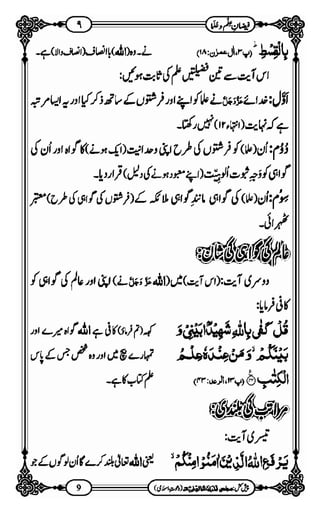 فیضانِ علم و علما ۹
بِالْقِسْطِ ؕ (پ۳،اٰل عمرٰن:۱۸) نے۔ وہ (اللہ) باانصاف (انصاف والا) ہے۔
اس آیت سے تین فضیلتیں علم کی ثابت ہوئیں:
اَوَّل: خدائے عَزَّوَجَلَّ نے علما کو اپنے اور فرشتوں کے ساتھ ذکر کیا اور یہ ایسا مرتبہ
ہے کہ نہایت (انتہاء) نہیں رکھتا۔
دُوُم: اُن (علما) کو فرشتوں کی طرح اپنی وحدانیت (ایک ہونے) کا گواہ اور اُن کی
گواہی کو وَجہِ ثبوتِ اُلُوہِیَّت (اپنے معبود ہونے کی دلیل) قرار دیا۔
سِوُم: اُن (علما) کی گواہی مانندِ گواہی ملائکہ کے (فرشتوں کی گواہی کی طرح) معتبر
ٹھہرائی۔
عالم کی گواہی کی شان:
دوسری آیت: (اس آیت) میں (اللہ عَزَّوَجَلَّ نے) اپنی اور عالم کی گواہی کو
کافی فرمایا:
قُلْ كَفٰى بِاللّٰهِ شَهِیْدًۢا بَیْنِیْ وَ کہہ (تم فرماؤ) کافی ہے اللہ گواہ میرے اور
بَیْنَكُمْ ۙ وَ مَنْ عِنْدَهٗ عِلْمُ تمہارے بیچ میں اور وہ شخص جس کے پاس
الْكِتٰبِ (پ۱۳،الرعد:۴۳) علم کتاب کا ہے۔
مراتب کی بلندی:
تیسری آیت:
یَرْفَعِ اللّٰهُ الَّذِیْنَ اٰمَنُوْا مِنْكُمْ ۙ یعنی اللہ تعالیٰ بلند کرے گا اُن لوگوں کے جو
9